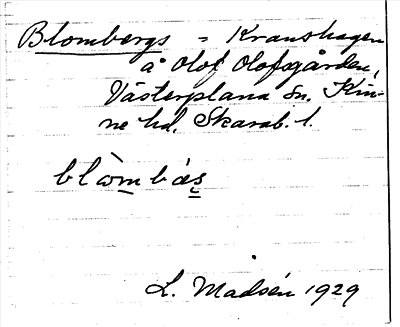 Blombergs = Kranshagen
å Olof Olofsgården,
Västerplana sn. Kin-
ne hd. Skarab. l.
blòmbæs
L. Madsén 1929